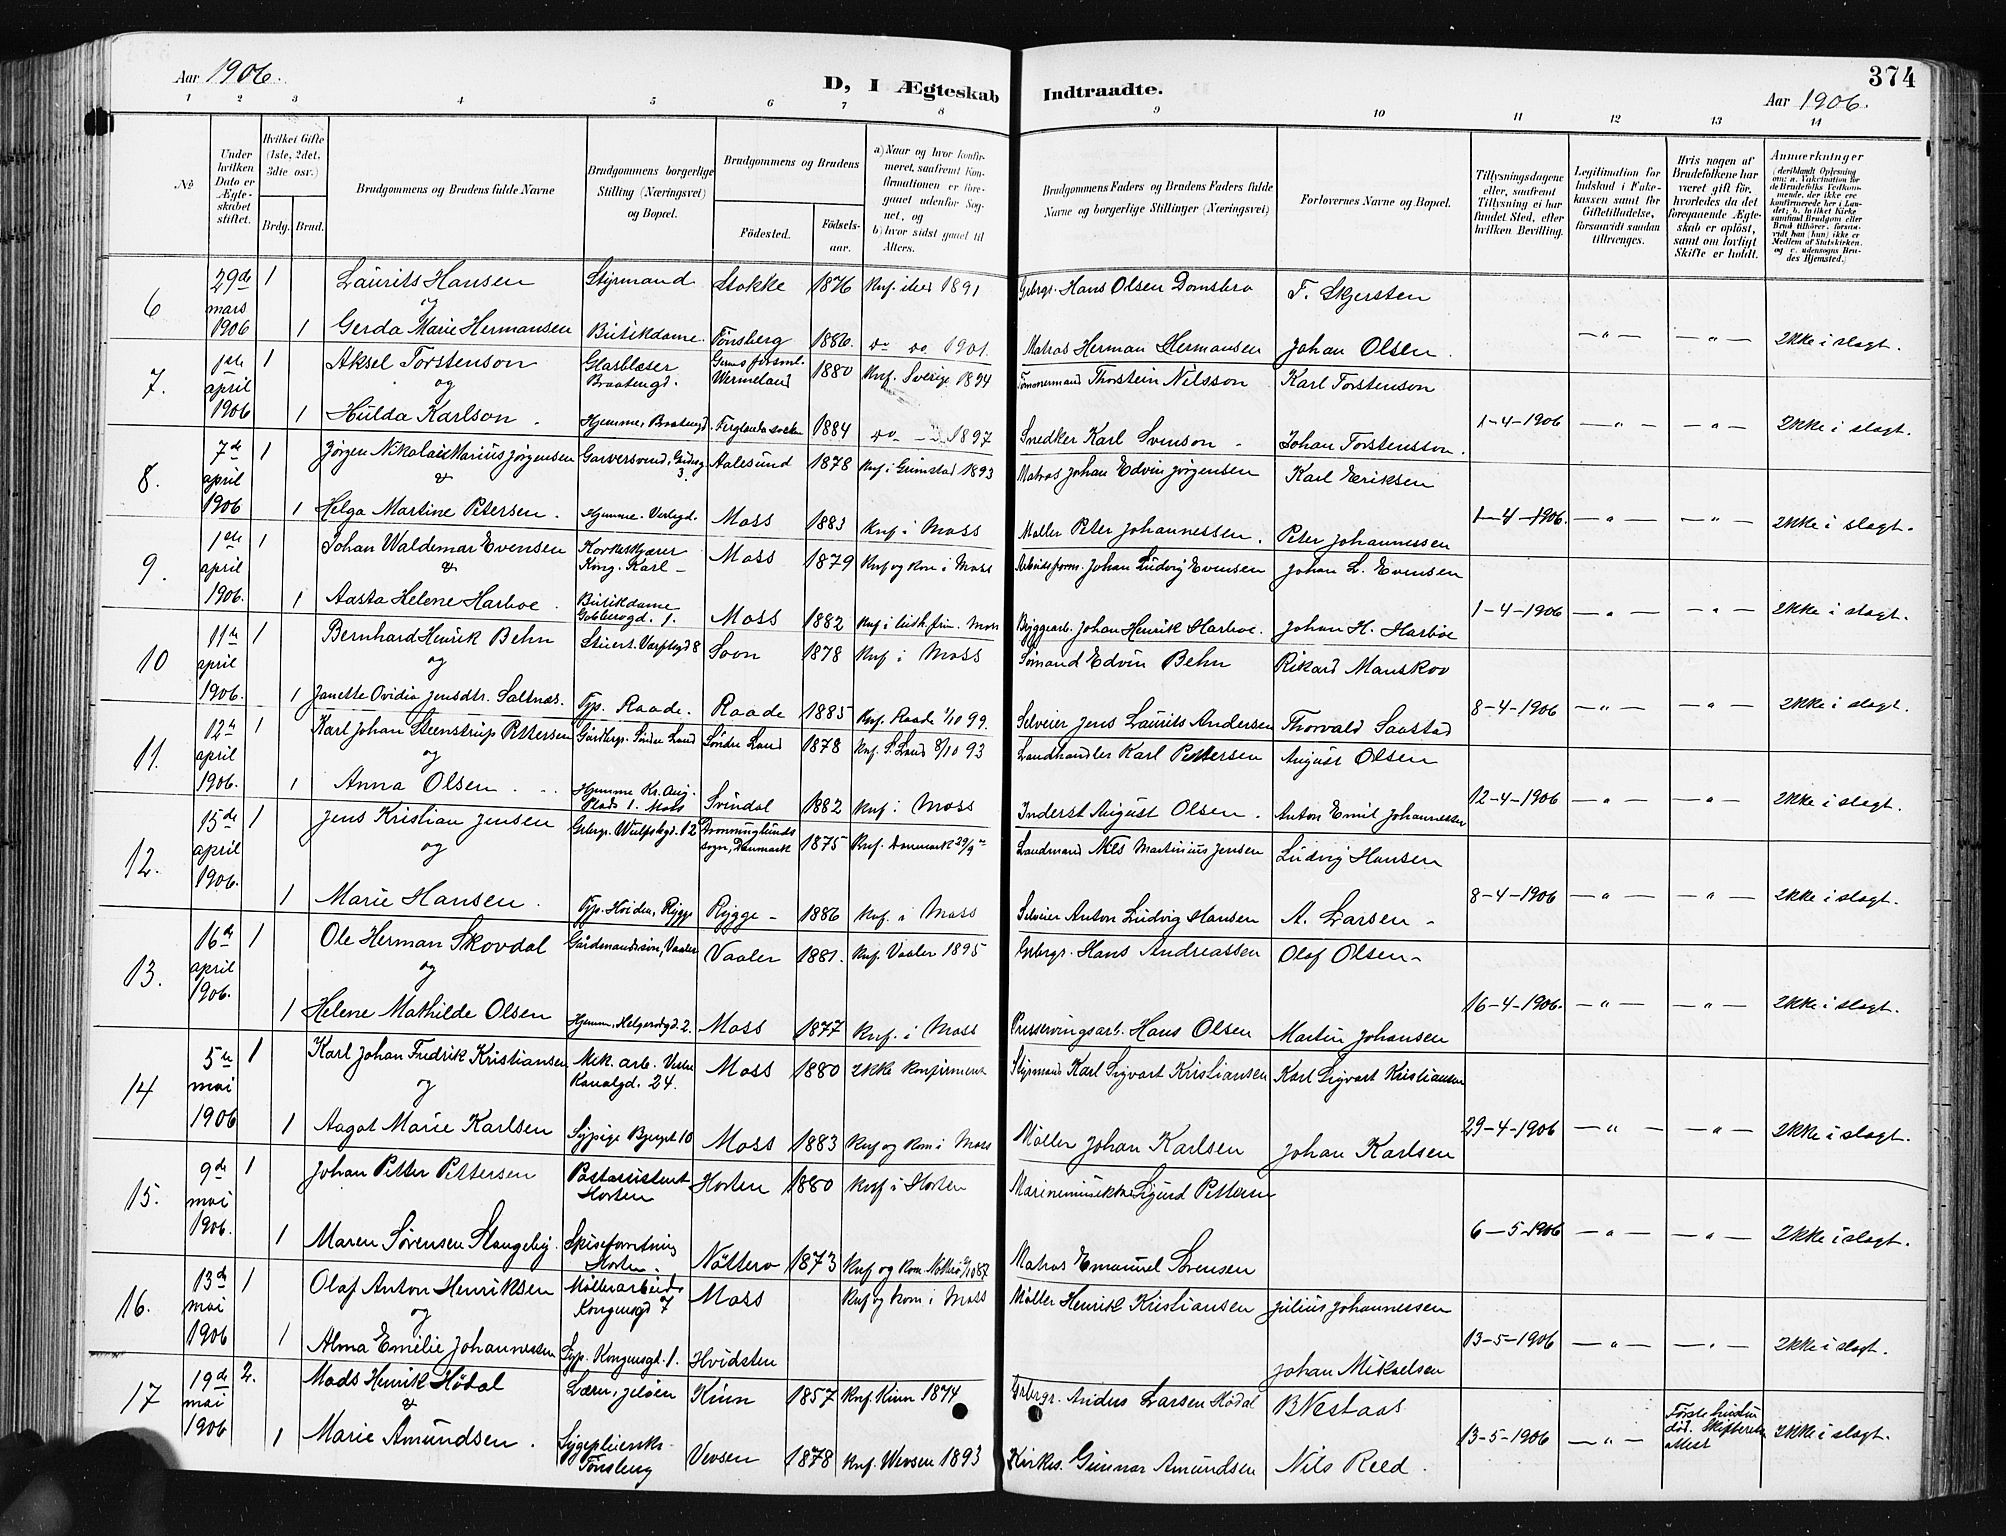 Aar 1906.
D, I Ægteskab Indtraadte.
374
Aar 1906.
1 2 3 4 5 6 7 8 9 10 11 12 13 14
No
Under hvilken Dato er Ægteskabet stiftet.
Hvilket Gifte (1ste, 2det, 3die osv.)
Brdg. Brud.
Brudgommens og Brudens fulde Navne
Brudgommens borgerlige Stilling (Næringsvei) og Bopæl.
Brudgommens og Brudens
Födested.
Födselsaar.
a) Naar og hvor konfirmeret, saafremt Konfirmationen er foregaaet udenfor Sognet, og
b) hvor sidst gaaet til Alters.
Brudgommens Faders og Brudens Faders fulde Navne og borgerlige Stillinger (Næringsvei)
Forlovernes Navne og Bopæl.
Tillysningsdagene eller, saafremt Tillysning ei har fundet Sted, efter hvilken Bevilling.
Legitimation for Indskud i Enkekassen samt for Giftetilladelse, forsaavidt saadan tiltrænges.
Hvis nogen af Brudefolkene har været gift før, hvorledes da det foregaaende Ægteskab er opløst, samt om lovligt Skifte er holdt.
Anmærkninger
6 29de mars 1906 1 Laurits Hansen Styrmand Stokke 1876 1891 Hans Olsen F. Skjersten
og
1 Gerda Marie Hermansen Butikdame Tønsberg 1886. do do 1901. Matros Herman Hermansen Johan Olsen. — " — — " — Ikke i slægt.
7. 1ste april 1906 1 Aksel Torstenson Glasblæser Wermeland 1880 Knf. Sverige 1894 Tømmermand Thorstein Nilsson Karl Torstenson
og
1 Hulda Karlson. Hjemme, 1884 do - 1897 Snedker Karl Svenson - Johan Torstensson. 1-4-1906 — " — — " — Ikke i slægt.
8. 7de april 1906 1 Jørgen Nikolai Marius Jørgensen Garversvend, 3 Aalesund 1878 Knf. i Grimstad 1893 Matros Johan Edvin Jørgensen Karl Eriksen
&
1 Helga Martine Petersen. Hjemme. Verlegd. Moss 1883 Knf i Moss Møller Peter Johannessen. Peter Johannessen 1-4-1906. — " — — " — Ikke i slægt.
9. 1ste april 1906. 1 Johan Waldemar Evensen Korkeskjærer Kong. Karl - Moss 1879 Knf og kom i Moss Johan Ludvig Evensen Johan L. Evensen
&
1 Aasta Helene Harboe. Butikdame 1. Moss 1882 Bryggearb. Johan Henrik Harboe. Johan H. Harboe 1-4-1906 — " — — " — Ikke i slægt.
10 11te april 1906. 1 Bernhard Henrik Behn Stuert. Værftsgd 8 Soon 1878 Knf i Moss Sømand Edvin Behn Rikard Manskov
og
1 Janette Ovidia Jensdtr. Saltnæs. Typ. Raade. Raade 1885 Knf. Raade 1/10 99. Selveier Jens Laurits Andersen Thorvald Saastad 8-4-1906 — " — — " — Ikke i slægt.
11. 12te april 1906. 1 Karl Johan Steenstrup Pettersen Gårdbrgr. Søndre Land Søndre Land 1878 Knf. S. Land 8/10 93 Landhandler Karl Pettersen August Olsen
og
1 Anna Olsen Hjemme Kr. Aug. Plads 1. Moss Svindal 1882 Knf i Moss Inderst August Olsen. Anton Emil Johannessen 12-4-1906 — " — — " — Ikke i slægt.
12. 15de april 1906. 1 Jens Kristian Jensen Wulfsbgd. 12 Dronninglunds sogn, Danmark 1875 Knf. Danmark Landmand Nils Martinius Jensen Ludvig Hansen
og
1 Marie Hansen. Typ. Hoiden, Rygge Rygge - 1886 Knf. i Moss Selveier Anton Ludvig Hansen A. Larsen - 8-4-1906 — " — — " — Ikke i slægt.
13. 16de april 1906. 1 Ole Herman Skovdal Gårdmandssøn, Vaaler Vaaler 1881. Knf. Vaaler 1895 Hans Andreassen Olaf Olsen -
og
1 Helene Mathilde Olsen Hjemm, Helgerødgd. 2. Moss 1877 Knf. i Moss Hans Olsen Martin Johansen 16-4-1906 — " — — " — Ikke i slægt.
14 5te mai 1906 1 Karl Johan Fredrik Kristiansen Mek. arb. Vestre Kanalgd. 24. Moss 1880 Ikke konfirmeret Styrmand Karl Sigvart Kristiansen Karl Sigvart Kristiansen
og
1 Aagot Marie Karlsen Sypige Bjerget 10 Moss 1883 Knf og kom i Moss Møller Johan Karlsen Johan Karlsen 29-4-1906 — " — — " — Ikke i slægt.
15. 9de mai 1906. 1 Johan Petter Pettersen Postassistent Horten Horten 1880 Knf i Horten Sigurd Pettersen
1 Maren Sørensen Stangeby. Spiseforretning Horten. Nøtterø 1873 Knf og kom. Nøtterø 87 Matros Emanuel Sørensen 6-5-1906 — " — — " — Ikke i slægt.
16. 13de mai 1906 1 Olaf Anton Henriksen Møllerarbeider Kongensgd 7 Moss Knf og kom i Moss Møller Henrik Kristiansen Julius Johannessen
og
1 Alma Emelie Johannessen Syp. Kongensgd. 1. Hvidsten Johan Mikaelsen 13-5-1906 — " — — " — Ikke i slægt.
17 19de mai 1906 2. Mads Henrik Hødal Lærer, Jeløen Kinn 1857 Knf. Kinn 1874 Anders Larsen Hødal B Nestaas
&
1 Marie Amundsen. Sygepleierske Tønsberg Vevsen 1878 Knf. Wevsen 1893 Kirkes. Gunnar Amundsen Nils Reed. 13-5-1906 — " — Første hustru død. Skifteretsattest Ikke i slægt.